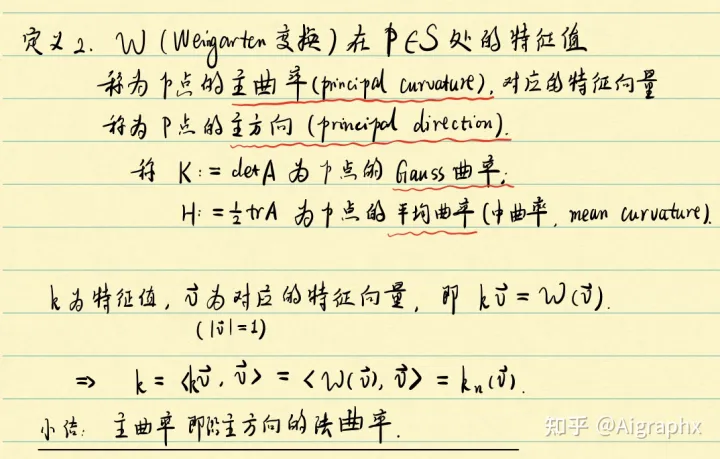 定义2. W (Weingarten 变换) 在 p∈S 处的特征值
称为 p点的主曲率(principal curvature), 对应的特征向量
称为 P点的主方向 (principal direction).
称 K := detA 为 p点的 Gauss 曲率;
H: = ½ trA 为 p点的 平均曲率 (中曲率, mean curvature).
k 为特征值, v⃗ 为对应的特征向量, 即 kv⃗ = W(v⃗).
(|v⃗|=1)
⇒ k = <kv⃗, v⃗> = <W(v⃗), v⃗> = kₙ(v⃗).
小结: 主曲率 即沿主方向的法曲率.
知乎 @Aigraphx